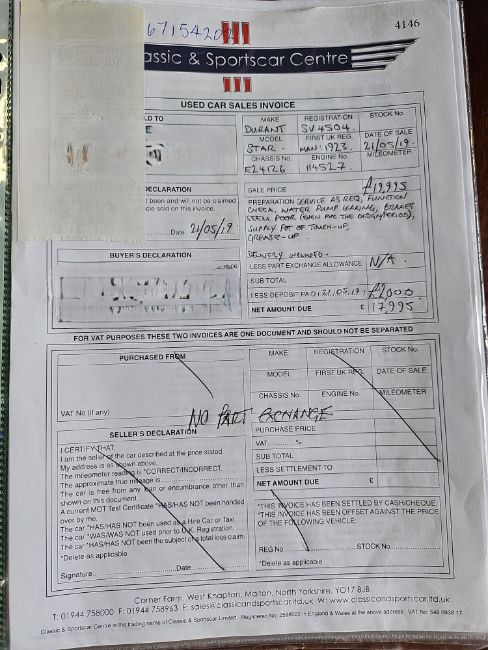 4146
assic & Sportscar Centre
USED CAR SALES INVOICE
LD TO
MAKE REGISTRATION STOCK No.
DURANT SV 4504.
MODEL FIRST UK REG DATE OF SALE
STAR. MAN: 1923. 21/05/19.
CHASSIS No. ENGINE No. MILEOMETER
E24126 114527.
DECLARATION
been and will not be claimed
cle sold on this invoice.
Date. 21/05/19.
SALE PRICE £19,995
PREPARATION SERVICE AS REQ, FUNCTION
CHECK, WATER PUMP LEAKING, BRAKES
SEEM POOR (EVEN FOR THE DESIGN/PERIOD),
SUPPLY POT OF TOUCH-UP,
GREASE-UP
DELIVERY INCLUDED.
BUYER'S DECLARATION
LESS PART EXCHANGE ALLOWANCE N/A.
SUB TOTAL
LESS DEPOSIT PAID (21.05.19) £2,000
NET AMOUNT DUE £ 17,995
FOR VAT PURPOSES THESE TWO INVOICES ARE ONE DOCUMENT AND SHOULD NOT BE SEPARATED
PURCHASED FROM
MAKE REGISTRATION STOCK No.
MODEL FIRST UK REG. DATE OF SALE
CHASSIS No. ENGINE No. MILEOMETER
VAT No (if any)
NO PART EXCHANGE
PURCHASE PRICE
VAT ........ %
SUB TOTAL
LESS SETTLEMENT TO
NET AMOUNT DUE £
SELLER'S DECLARATION
I CERTIFY THAT:
I am the seller of the car described at the price stated.
My address is as shown above.
The mileometer reading is *CORRECT/INCORRECT.
The approximate true mileage is
The car is free from any lien or encumbrance other than
shown on this document.
A current MOT Test Certificate *HAS/HAS NOT been handed
over by me.
The car *HAS/HAS NOT been used as a Hire Car or Taxi.
The car *WAS/WAS NOT used prior to U.K. Registration.
The car *HAS/HAS NOT been the subject of a total loss claim.
*Delete as applicable
Signature Date
*THIS INVOICE HAS BEEN SETTLED BY CASH/CHEQUE.
*THIS INVOICE HAS BEEN OFFSET AGAINST THE PRICE
OF THE FOLLOWING VEHICLE:
REG No STOCK No.
*Delete as applicable
Corner Farm, West Knapton, Malton, North Yorkshire, YO17 8JB
T: 01944 758000 F: 01944 758963 E: sales@classicandsportscar.ltd.uk W: www.classicandsportscar.ltd.uk
Classic & Sportscar Centre is the trading name of Classic & Sportscar Limited. Registered No: 2598022 in England & Wales at the above address. VAT No: 548 0938 17